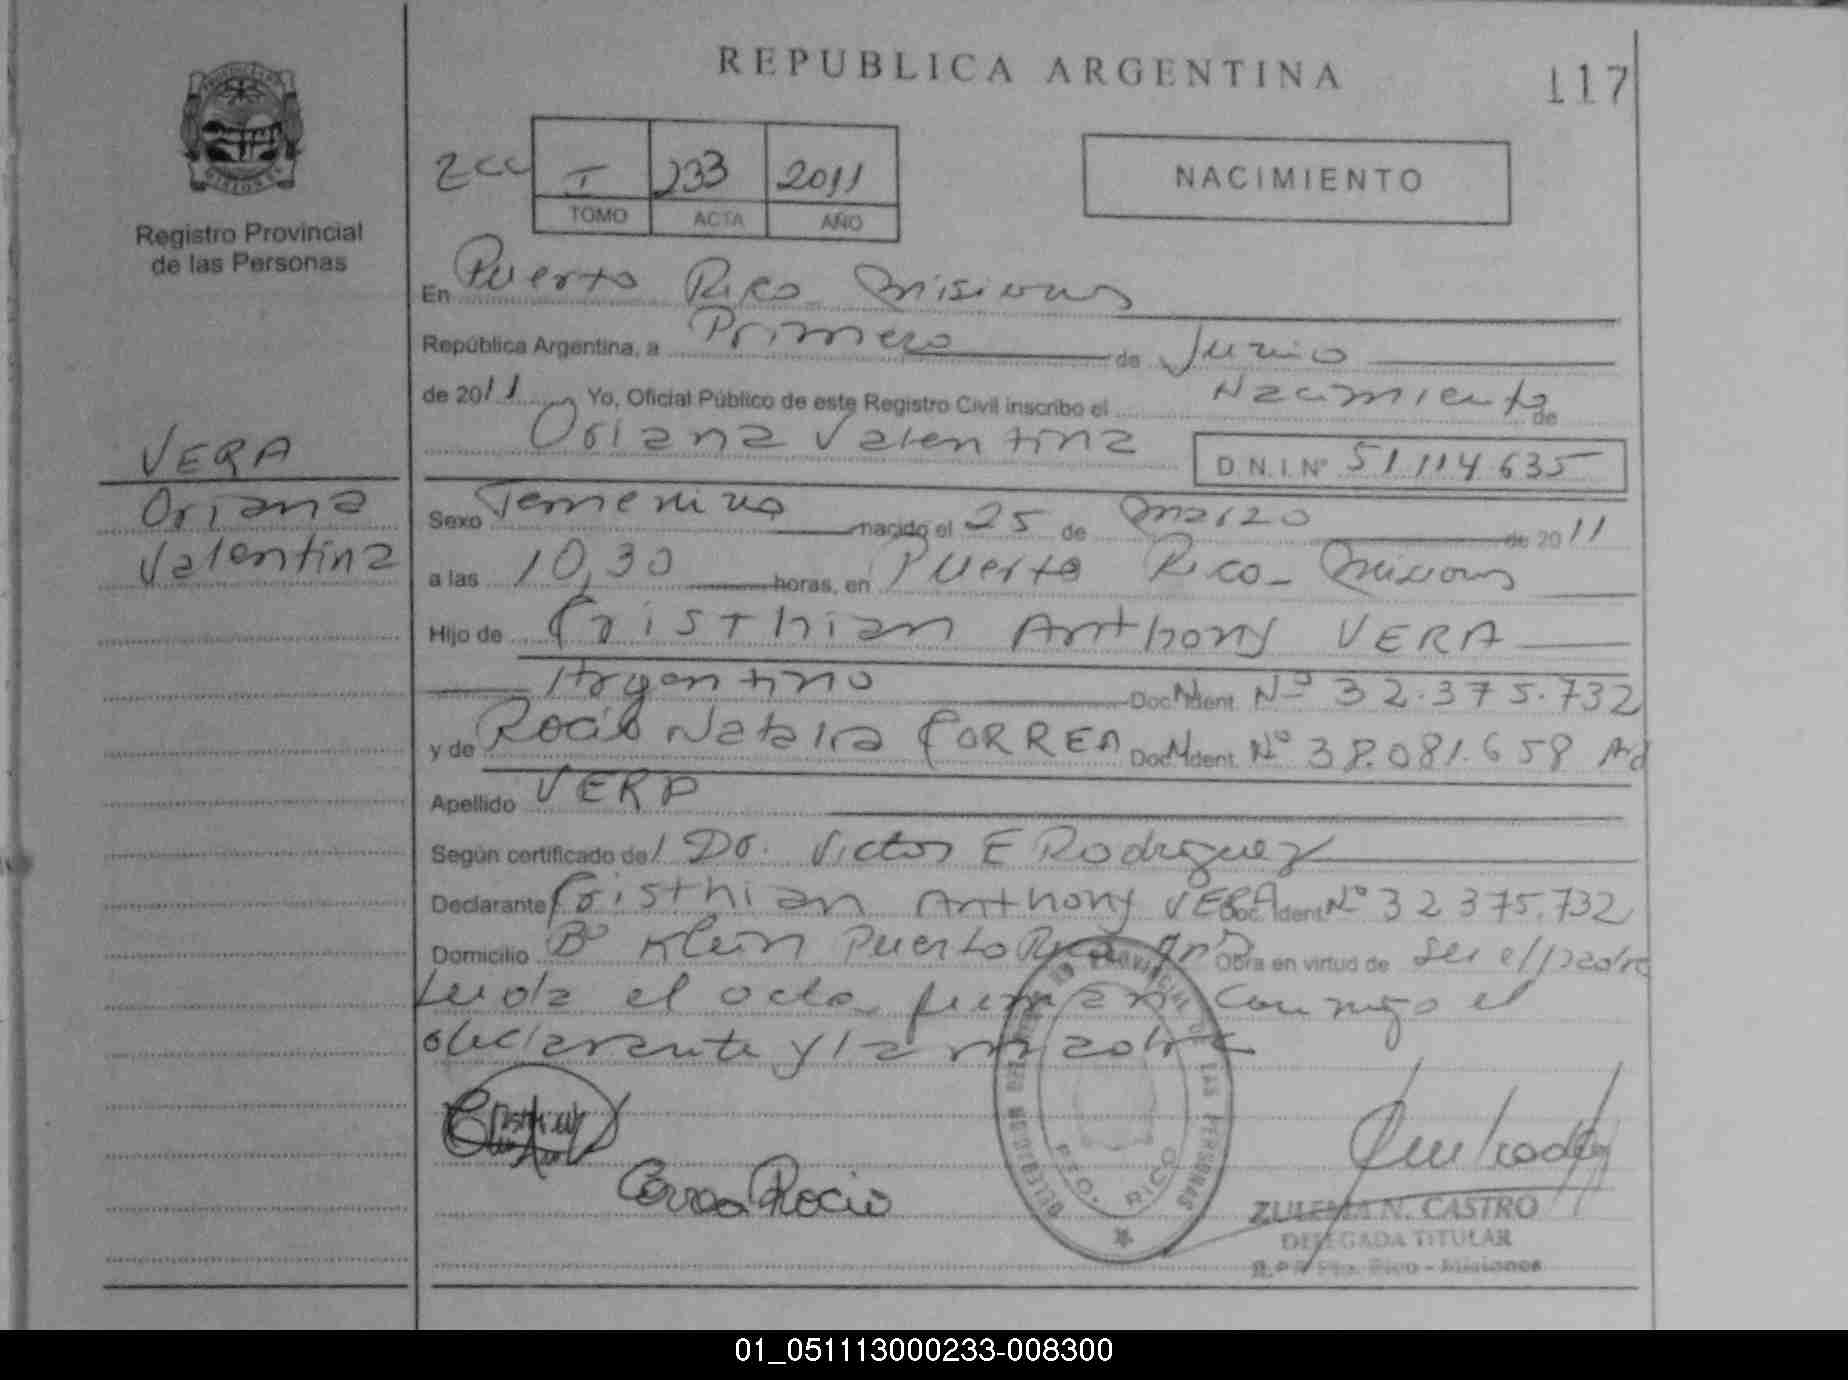 REPUBLICA ARGENTINA
117
I 233 2011
TOMO ACTA AÑO
NACIMIENTO
Registro Provincial
de las Personas
VERA
Oriana
Valentina
En Puerto Rico Misiones
República Argentina, a Primero de Junio
de 2011 Yo, Oficial Público de este Registro Civil inscribo el Nacimiento de
Oriana Valentina D.N.I.Nº 51.114.635
Sexo Femenino nacido el 25 de Marzo de 2011
a las 10,30 horas, en Puerto Rico - Misiones
Hijo de Cristhian Anthony VERA
Argentino Doc. Ident. Nº 32.375.732
y de Rocio Natalia CORREA Doc. Ident. Nº 38.081.658
Apellido VERA
Según certificado del Dr. Victor E Rodriguez
Declarante Cristhian Anthony VERA Doc. Ident. Nº 32375.732
Domicilio Bº Klein Puerto Rico Obra en virtud de ser el padre
Leida el acta firman conmigo el
declarante y la madre
Correa Rocio
REGISTRO PROVINCIAL DE LAS PERSONAS
PTO. RICO
ZULEMA N. CASTRO
DELEGADA TITULAR
R.P.P. Pto. Rico - Misiones
01_051113000233-008300